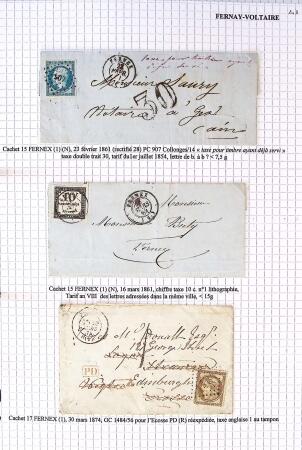 FERNAY-VOLTAIRE
FERNEX
taxe pour timbre ayant
déjà servi
Monsieur
30
Notaire à Gex
Ain
Cachet 15 FERNEX (1) (N), 23 février 1861 (rectifié 28) PC 907 Collonges/14 « taxe pour timbre ayant déjà servi »
taxe double trait 30, tarif du 1er juillet 1854, lettre de b. à b ? < 7,5 g
10
FERNEX
Monsieur
Monsieur
Fernex
Cachet 15 FERNEX (1) (N), 16 mars 1861, chiffre taxe 10 c. n°1 lithographie,
Tarif an VIII des lettres adressées dans la même ville, < 15g
George Street
PD
Edinburgh
Cachet 17 FERNEX (1), 30 mars 1874, GC 1484/56 pour l'Ecosse PD (R) réexpédiée, taxe anglaise 1 au tampon